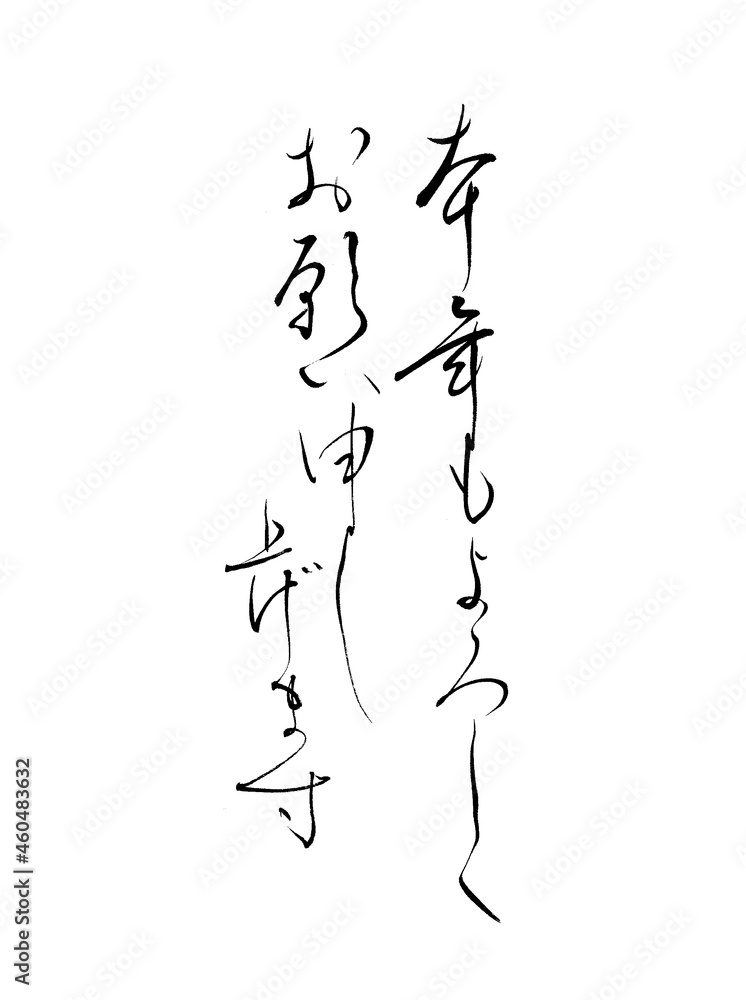 本年もよろしく
お願い申し
上げます
Adobe Stock | #460483632